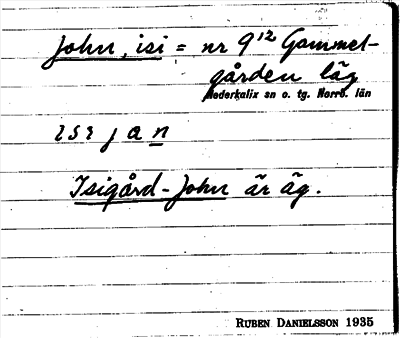 John, isi = nr 9¹² Gammel-
gården läg
Nederkalix sn o. tg. Norrb. län
ısı ȷ a n
Isigård-John är äg.
RUBEN DANIELSSON 1935